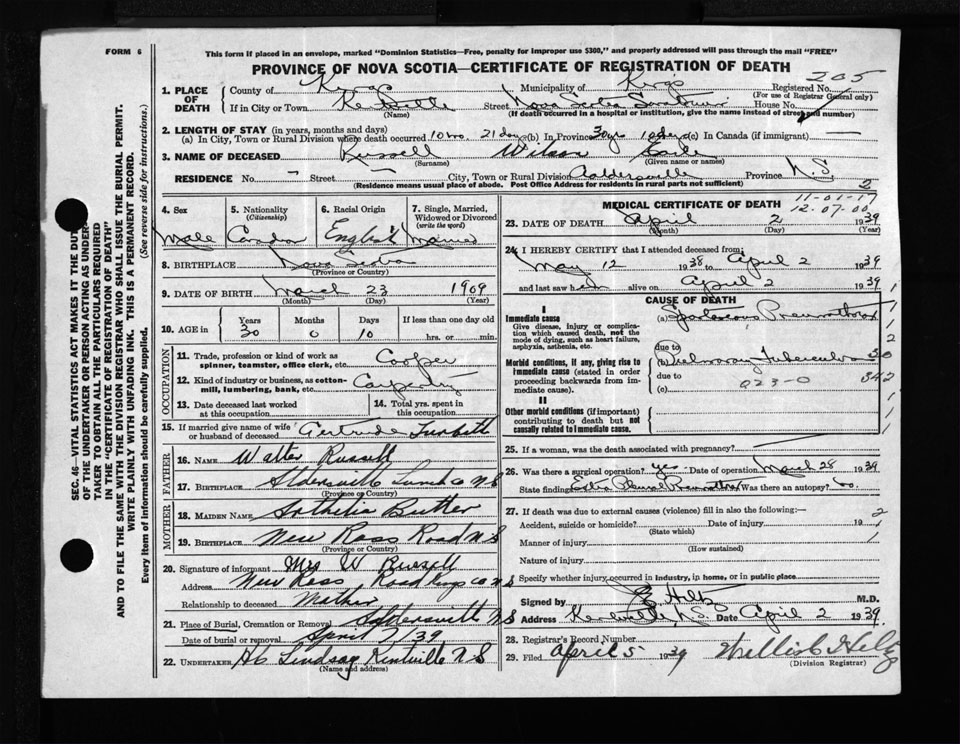 FORM 6
This form if placed in an envelope, marked "Dominion Statistics—Free, penalty for improper use $300," and properly addressed will pass through the mail "FREE"
PROVINCE OF NOVA SCOTIA—CERTIFICATE OF REGISTRATION OF DEATH
205
1. PLACE OF DEATH
County of Kings Municipality of Kings Registered No.
(For use of Registrar General only)
If in City or Town Kentville Street Nova Scotia Sanatorium House No.
(Name) (If death occurred in a hospital or institution, give the name instead of street and number)
2. LENGTH OF STAY (in years, months and days)
(a) In City, Town or Rural Division where death occurred 10 mo. 21 days (b) In Province 30 yrs 10 days (c) In Canada (if immigrant) —
3. NAME OF DECEASED Russell Wilson Earle
(Surname) (Given name or names)
RESIDENCE No. — Street — City, Town or Rural Division Aaldersville Province N.S.
(Residence means usual place of abode. Post Office Address for residents in rural parts not sufficient)
4. Sex Male
5. Nationality (Citizenship) Canadian
6. Racial Origin English
7. Single, Married, Widowed or Divorced (write the word) Married
8. BIRTHPLACE Nova Scotia
(Province or Country)
9. DATE OF BIRTH March 23 1909
(Month) (Day) (Year)
10. AGE in Years 30 Months 0 Days 10 If less than one day old
hrs. or min.
OCCUPATION
11. Trade, profession or kind of work as spinner, teamster, office clerk, etc. Cooper
12. Kind of industry or business, as cotton-mill, lumbering, bank, etc. Carpentry
13. Date deceased last worked at this occupation
14. Total yrs. spent in this occupation
15. If married give name of wife or husband of deceased Gertrude Turbitt
FATHER
16. NAME Walter Russell
17. BIRTHPLACE Aldersville Lunen Co N S
(Province or Country)
MOTHER
18. MAIDEN NAME Butler
19. BIRTHPLACE New Ross Road N S
(Province or Country)
20. Signature of informant Mrs W Russell
Address New Ross Road Kings Co N S
Relationship to deceased Mother
21. Place of Burial, Cremation or Removal Aldersville N S
Date of burial or removal April 7/39
22. UNDERTAKER Lindsay Kentville N S
(Name and address)
2
MEDICAL CERTIFICATE OF DEATH
11-01-17
12-07-00
23. DATE OF DEATH April 2 1939
(Month) (Day) (Year)
24. I HEREBY CERTIFY that I attended deceased from:
May 12 1938 to April 2 1939
and last saw him alive on April 2 1939
CAUSE OF DEATH
I
Immediate cause
Give disease, injury or complication which caused death, not the mode of dying, such as heart failure, asphyxia, asthenia, etc.
(a) Spontaneous Pneumothorax
due to
Morbid conditions, if any, giving rise to immediate cause (stated in order proceeding backwards from immediate cause).
(b) Pulmonary Tuberculosis
due to
(c)
023-0
30
342
II
Other morbid conditions (if important) contributing to death but not causally related to immediate cause.
25. If a woman, was the death associated with pregnancy?
26. Was there a surgical operation? yes Date of operation March 28 1939
State finding Extra Pleural Pneumothorax Was there an autopsy? no
27. If death was due to external causes (violence) fill in also the following:—
Accident, suicide or homicide? Date of injury 19
(State which)
Manner of injury
(How sustained)
Nature of injury
Specify whether injury occurred in industry, in home, or in public place
Signed by Hiltz M.D.
Address Kentville N.S. Date April 2 1939
28. Registrar's Record Number
29. Filed April 5 1939 Hiltz
(Division Registrar)
SEC. 46—VITAL STATISTICS ACT MAKES IT THE DUTY
OF THE UNDERTAKER OR PERSON ACTING AS UNDER-
TAKER TO OBTAIN ALL THE PARTICULARS REQUIRED
IN THE "CERTIFICATE OF REGISTRATION OF DEATH"
AND TO FILE THE SAME WITH THE DIVISION REGISTRAR WHO SHALL ISSUE THE BURIAL PERMIT.
WRITE PLAINLY WITH UNFADING INK. THIS IS A PERMANENT RECORD.
Every item of information should be carefully supplied. (See reverse side for instructions.)